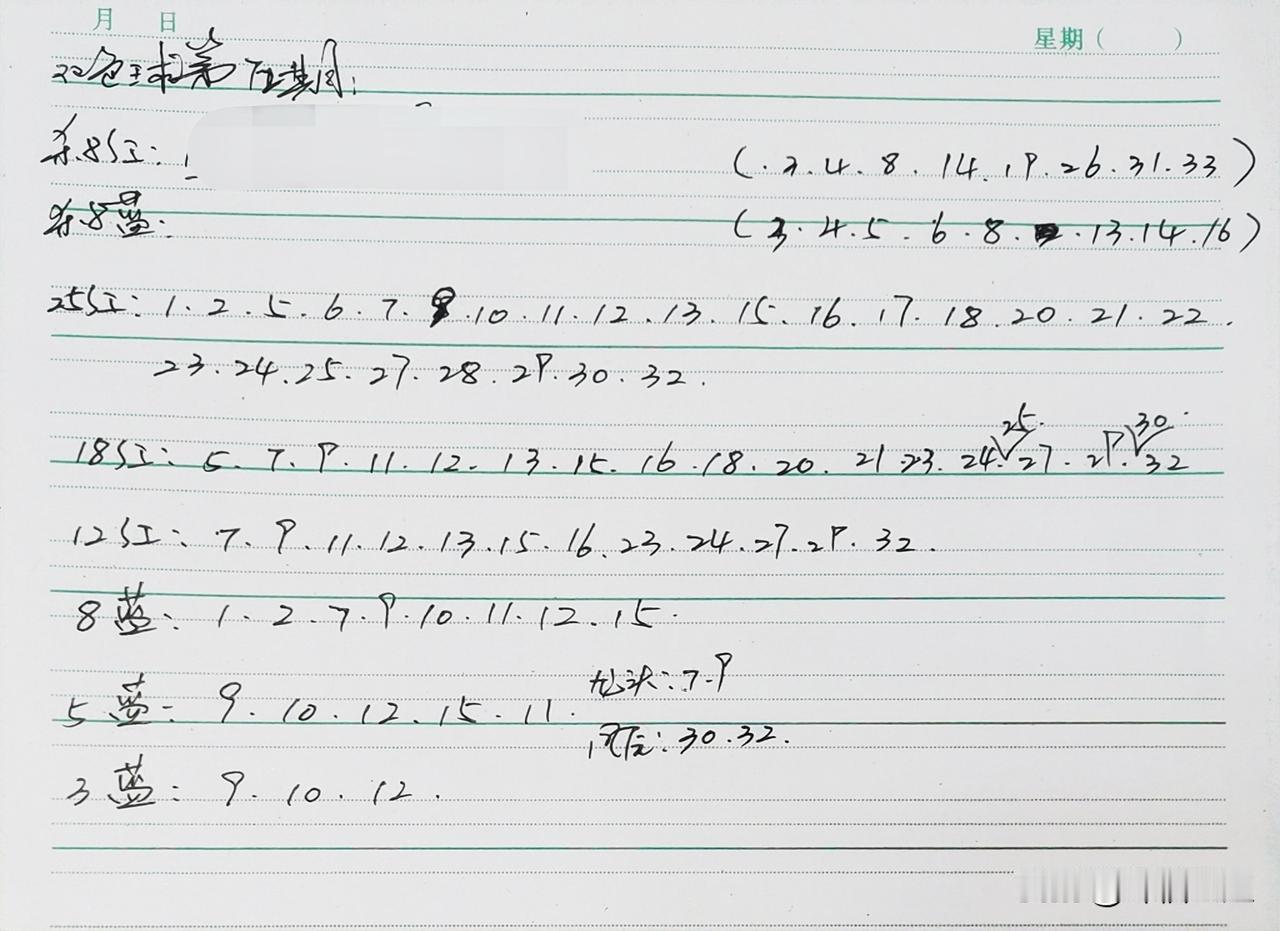 月 日 星期( )
双色球第 期:
杀8红: (.3.4.8.14.19.26.31.33)
杀8蓝: (3.4.5.6.8.13.14.16)
25红: 1.2.5.6.7.9.10.11.12.13.15.16.17.18.20.21.22.
23.24.25.27.28.29.30.32.
25. 30.
18红: 5.7.9.11.12.13.15.16.18.20.21 23.24.27.29.32
12红: 7.9.11.12.13.15.16.23.24.27.29.32.
8蓝: 1.2.7.9.10.11.12.15.
龙头:7.9
5蓝: 9.10.12.15.11.
凤尾:30.32.
3蓝: 9.10.12.